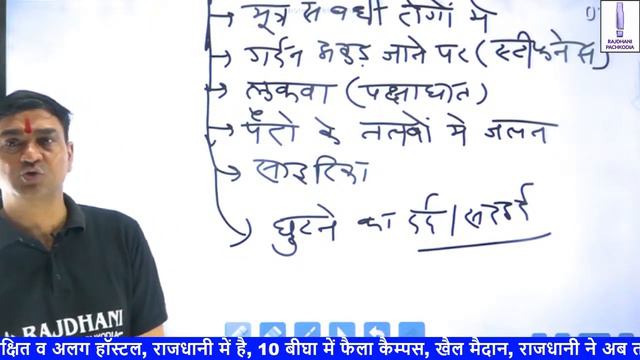 → मूत्र संबंधी रोगों में
→ गर्दन अकड़ जाने पर (स्टीफनेस)
→ लकवा (पक्षाघात)
→ पैरों के तलवों में जलन
→ साइटिका
→ घुटने का दर्द / सरदर्द
RAJDHANI
PACHKODIA
RAJDHANI
क्षित व अलग हॉस्टल, राजधानी में है, 10 बीघा में फैला कैम्पस, खेल मैदान, राजधानी ने अब